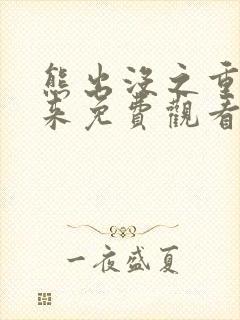 熊出没之重
来免費觀看
一夜盛夏